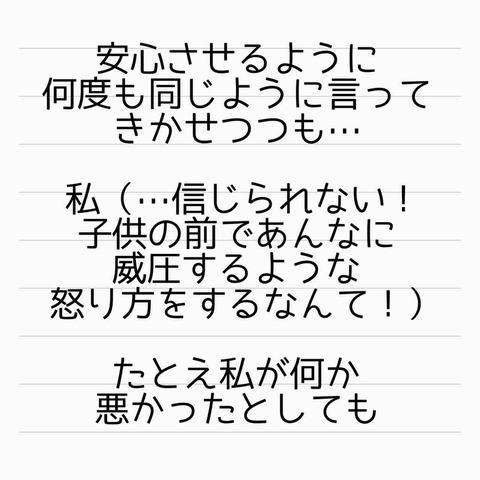 安心させるように
何度も同じように言って
きかせつつも…
私（…信じられない！
子供の前であんなに
威圧するような
怒り方をするなんて！）
たとえ私が何か
悪かったとしても